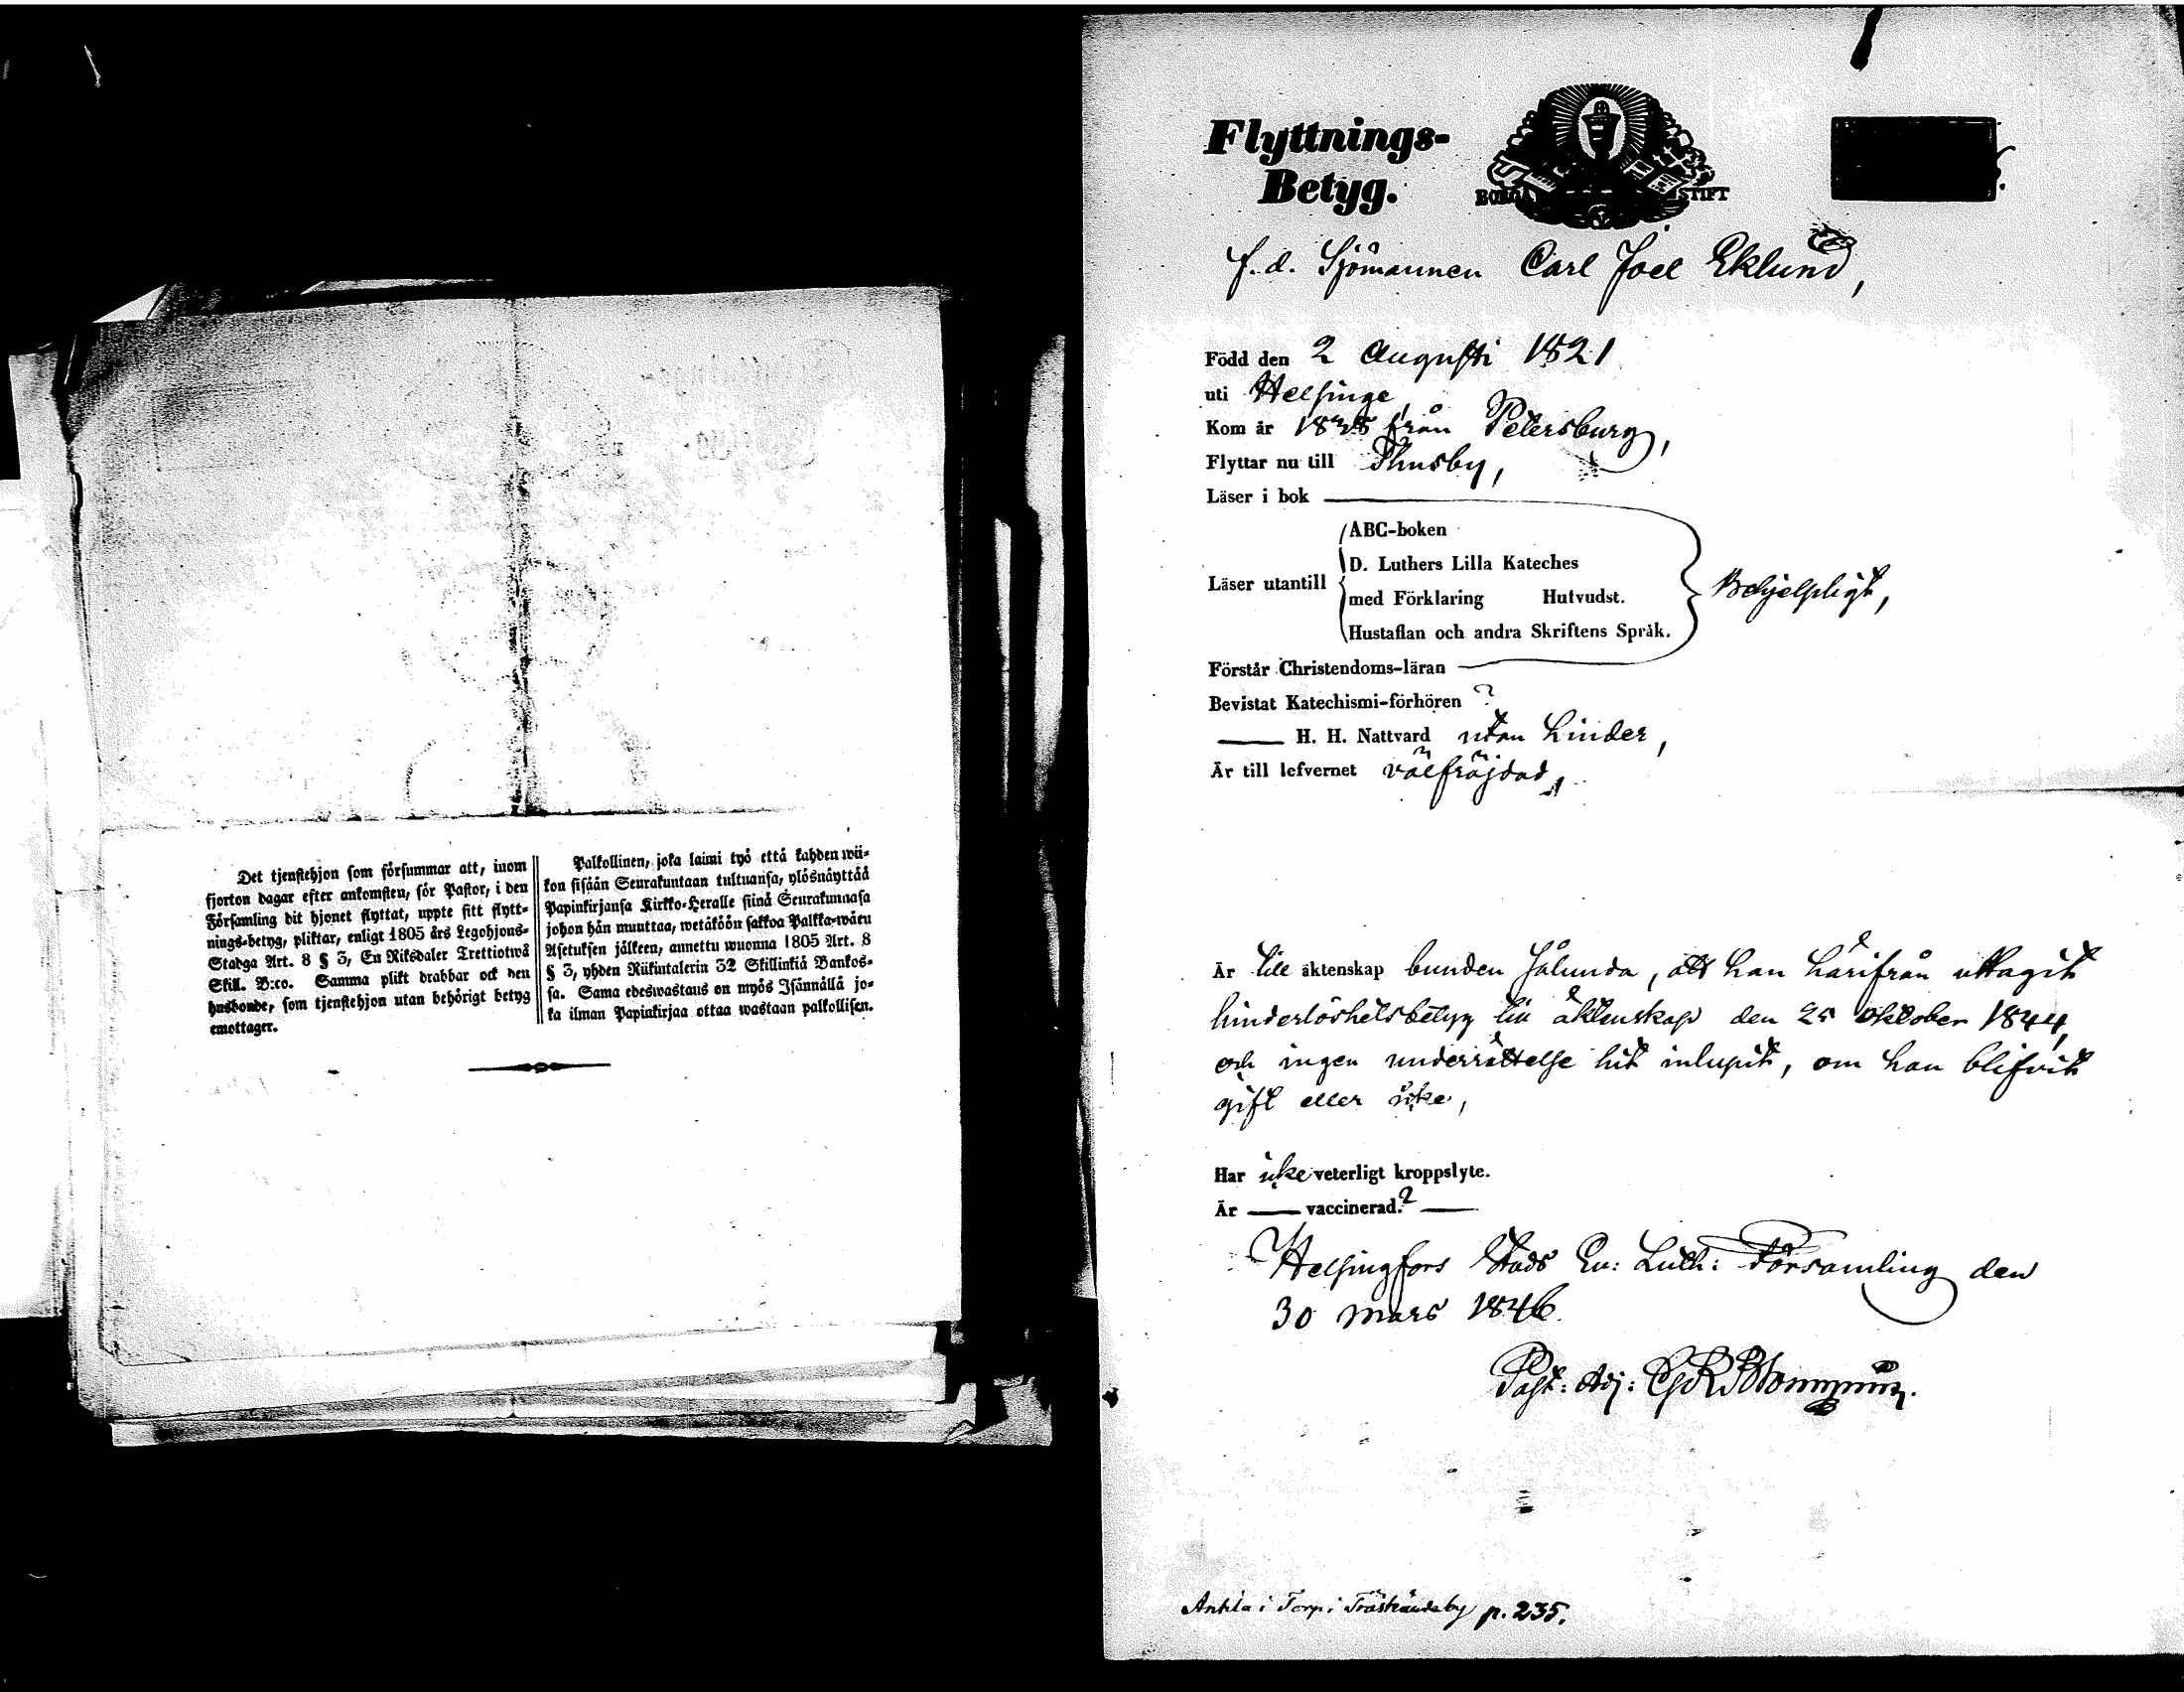 Det tjenstehjon som försummar att, inom
fjorton dagar efter ankomsten, för Pastor, i den
Församling dit hjonet flyttat, uppte sitt flytt-
nings-betyg, pliktar, enligt 1805 års Legohjons-
Stadga Art. 8 § 3, En Riksdaler Trettiotwå
Skill. B:co. Samma plikt drabbar ock den
husbonde, som tjenstehjon utan behörigt betyg
emottager.
Palkollinen, joka laimi lyö että kahden wii-
kon sisään Seurakuntaan tultuansa, ylösnäyttää
Papinkirjansa Kirkko-Herralle siinä Seurakunnasa
johon hän muuttaa, wetäköön sakkoa Palkka-wäen
Asetuksen jälkeen, annettu wuonna 1805 Art. 8
§ 3, yhden Riikintalerin 32 Skillinkiä Bankos-
sa. Sama edeswastaus on myös Isännällä jo-
ka ilman Papinkirjaa ottaa wastaan palkollisen.
Flyttnings-
Betyg.
BORGÅ STIFT
f. d. Sjömannen Carl Joel Eklund,
Född den 2 Augusti 1821
uti Helsinge,
Kom år från Petersburg,
Flyttar nu till Thusby,
Läser i bok
ABC-boken
D. Luthers Lilla Kateches
Läser utantill
med Förklaring Hufvudst.
Behjelpligt,
Hustaflan och andra Skriftens Språk.
Förstår Christendoms-läran
Bevistat Katechismi-förhören ?
H. H. Nattvard utan hinder,
Är till lefvernet välfräjdad,
Är till äktenskap bunden sålunda, att han härifrån uttagit
hinderlöshetsbetyg till äktenskap den 25 Oktober 1844,
och ingen underrättelse hit inlupit, om han blifvit
gift eller icke,
Har icke veterligt kroppslyte.
Är vaccinerad. ?
Helsingfors Stads Ev: Luth: Församling den
30 Mars 1846.
Past: Adj:
i Torp i Träskändaby p. 235.